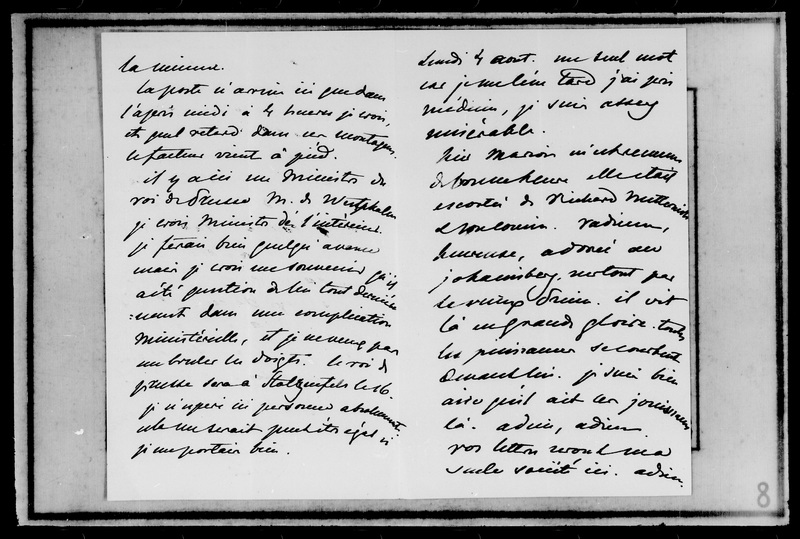 la mienne.
La poste n'arrive ici que dans
l'après midi à 4 heures je crois,
et quel retard dans ces montagnes.
le facteur vient à pied.
il y a ici un Ministre du
roi de Prusse M. de Westphalen
je crois Ministre de l'intérieur.
je ferais bien quelque avance
mais je crois me souvenir qu'il
a été question de lui tout dernière
-ment dans une complication
Ministérielle, et je ne veux pas
me bruler les doigts. le roi de
prusse sera à Stolzenfels le 16.
je n'espère ici personne absolument
cela me serait peut être égal si
je me portais bien.
Lundi 4 aout. un seul mot
car je me lève tard j'ai pris
médecine, je suis assez
misérable.
hier Marion m'est revenue
de bonne heure elle était
escortée de Richard Metternich
et son cousin. radieuse,
heureuse, adorée au
johannisberg, surtout par
le vieux Prince. il vit
là en grande gloire. toutes
les puissances se courbent
devant lui. je suis bien
aise qu'il ait ces jouissances
là. adieu, adieu.
vos lettres seront ma
seule société ici. adieu.
8